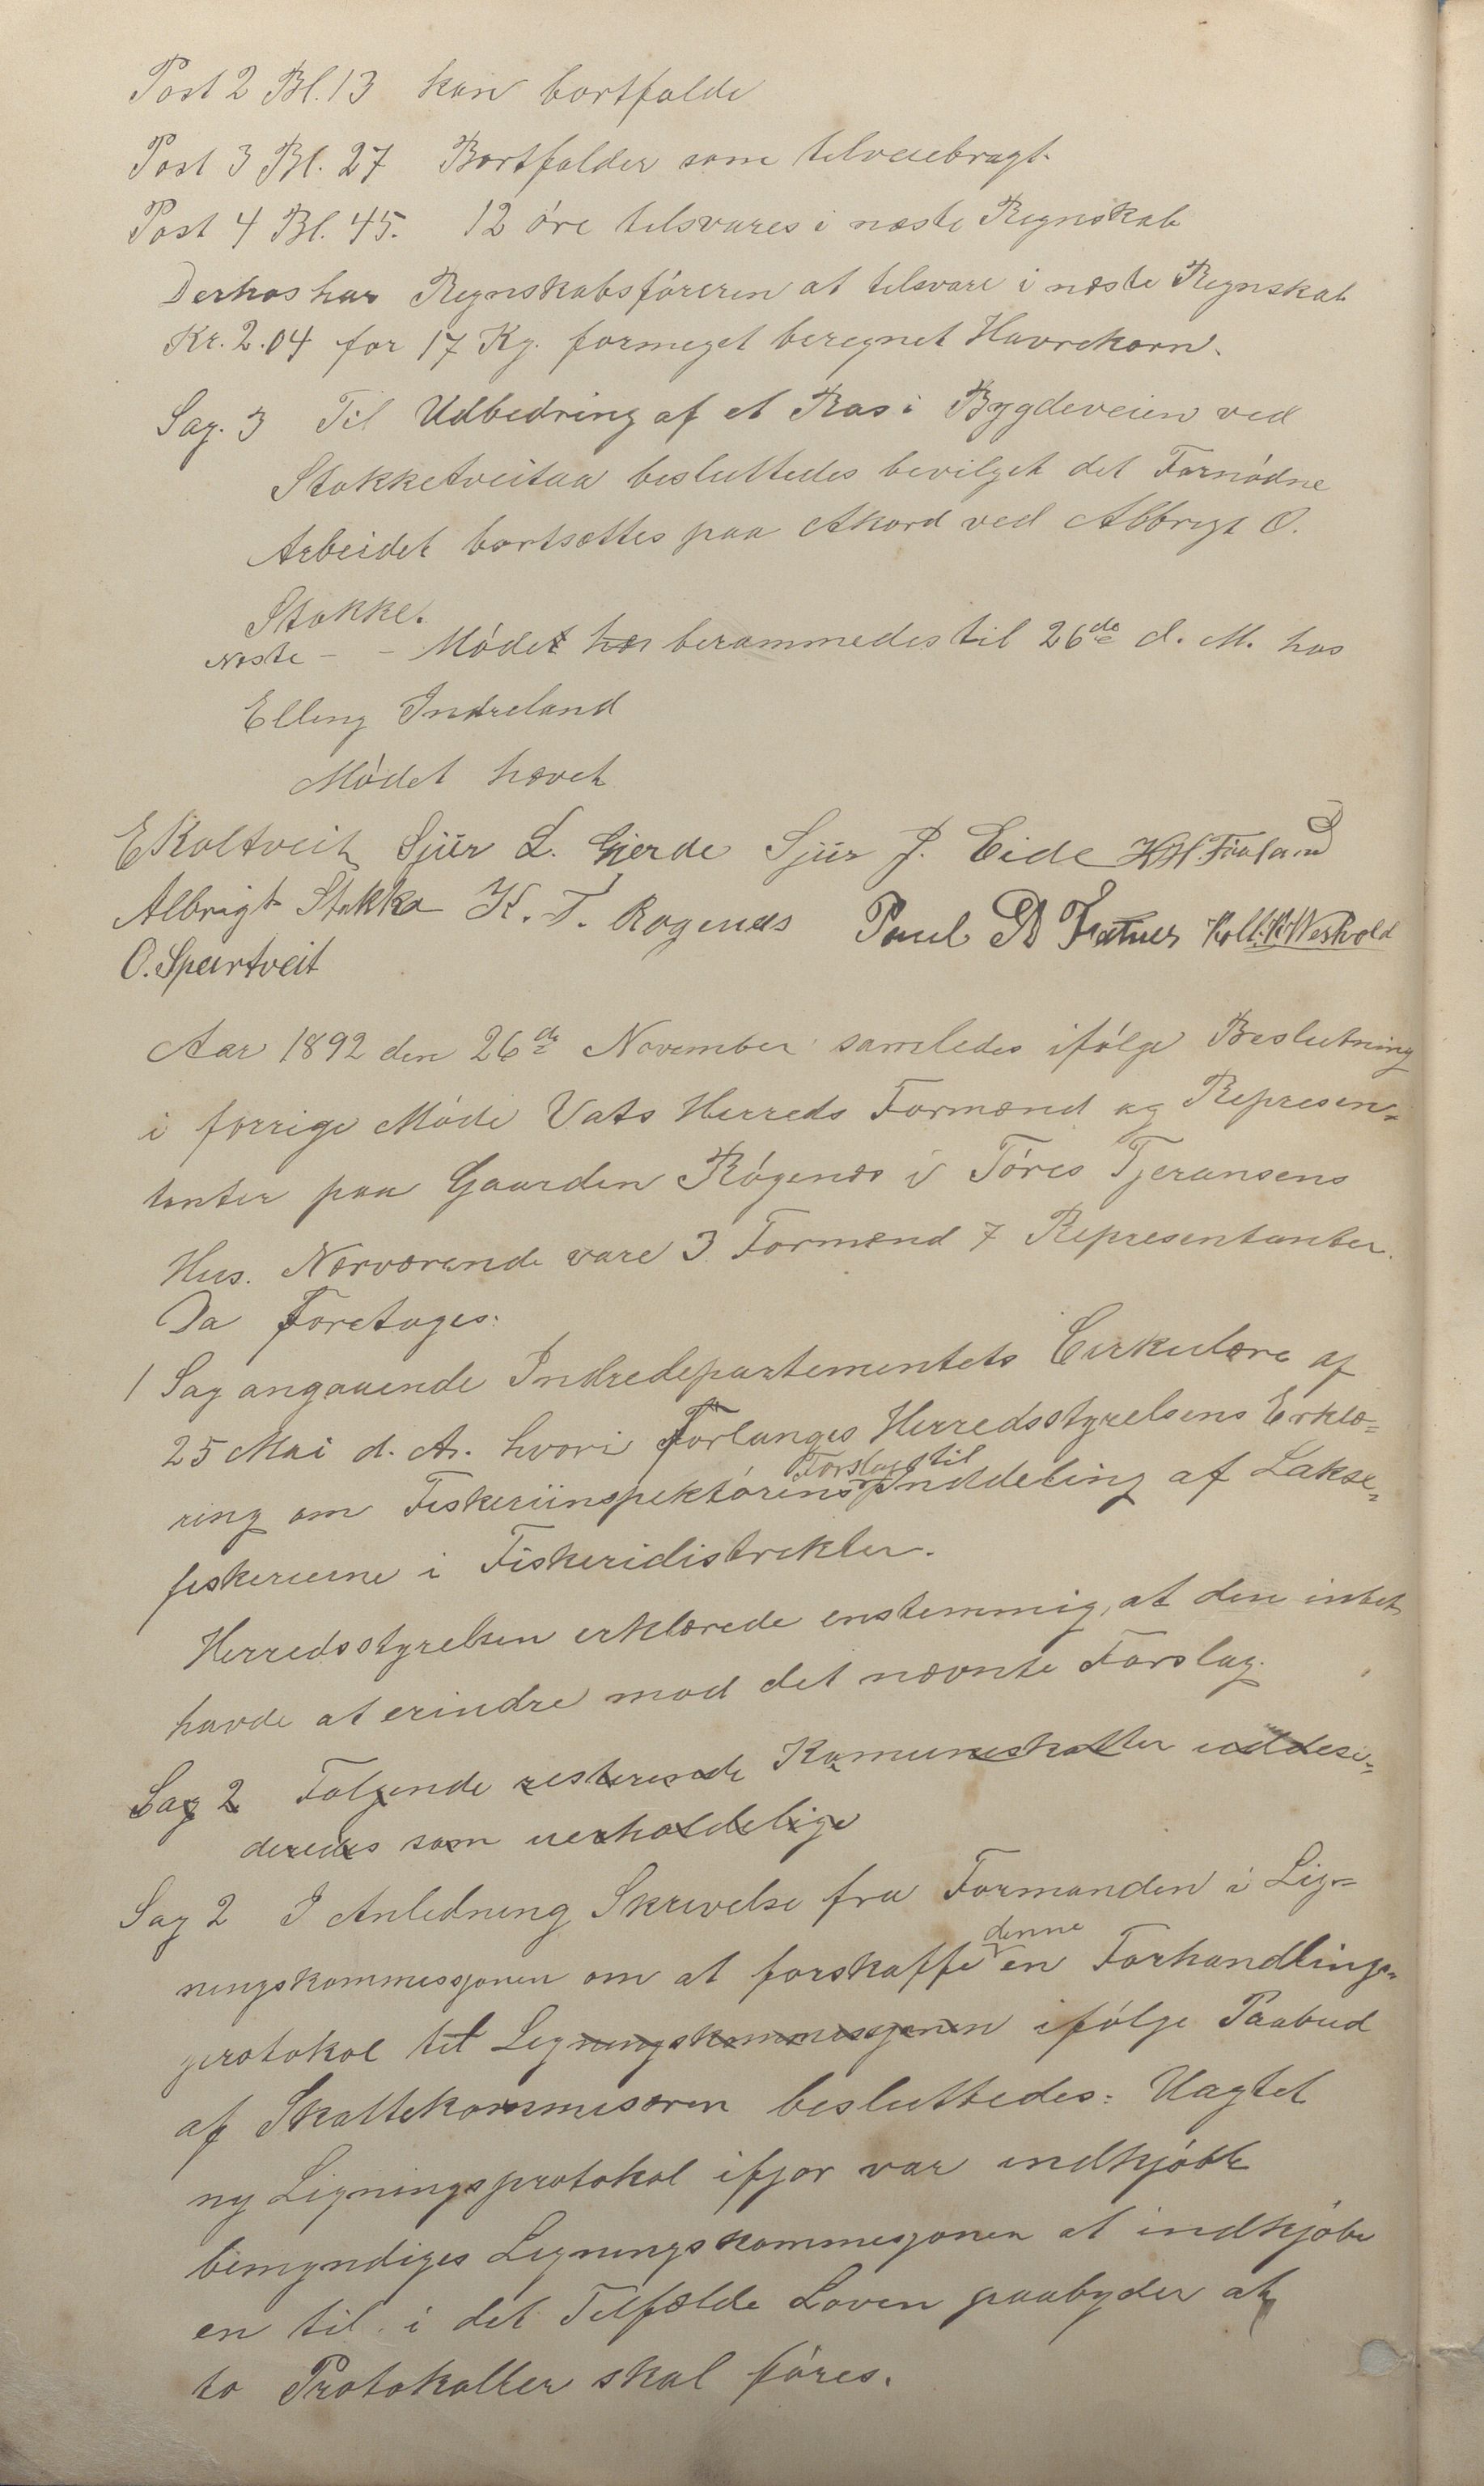 Post 2 Bl. 13 kan bortfalde
Post 3 Bl. 27 Bortfalder som tilveiebragt.
Post 4 Bl. 45. 12 öre tilsvares i næste Regnskab
Derhos har Regnskabsföreren at tilsvare i næste Regnskab
Kr. 2.04 for 17 Kg. formeget beregnet Havrekorn.
Sag. 3 Til Udbedring af et Ras i Bygdeveien ved
Stokketveitaa besluttedes bevilget det Fornödne
Arbeidet bortsættes paa Akord ved Albrigt O.
Stokke.
Næste - - Mödet har berammedes til 26de d. M. hos
Elling Indreland
Mödet hævet
E Koltveit Sjur L. Gjerde Sjur J. Eide
Albrigt Stokka K. T. Rogenæs Paul
O. Spartveit
Aar 1892 den 26de November samledes ifölge Beslutning
i forrige Möde Vats Herreds Formænd og Represen-
tanter paa Gaarden Rögenæs i Töres Tjeransens
Hus. Nærværende vare 3 Formænd 7 Representanter.
Da Foretages:
1 Sag angaaende Indredepartementets Cirkulære af
25 Mai d. A. hvori Forlanges Herredsstyrelsens Erklæ=
ring om Fiskeriinspektörens Forslag til Inddeling af Lakse=
fiskerierne i Fiskeridistrikter.
Herredsstyrelsen erklærede enstemmig, at den intet
havde at erindre mod det nævnte Forslag.
Sag 2 Følgende resterende Komuneskatter uddesi=
deredes som uerholdelige
Sag 2 I Anledning Skrivelse fra Formanden i Lig=
ningskommissjonen om at forskaffe denne en Forhandlings=
protokol til Ligningskommissjonen ifölge Paabud
af Skattekommisæren besluttedes: Uagtet
ny Ligningsprotokol ifjor var indkjöbt
bemyndiges Ligningskommisjonen at indkjöbe
en til i det Tilfælde Loven paabyder at
to Protokoller skal föres.